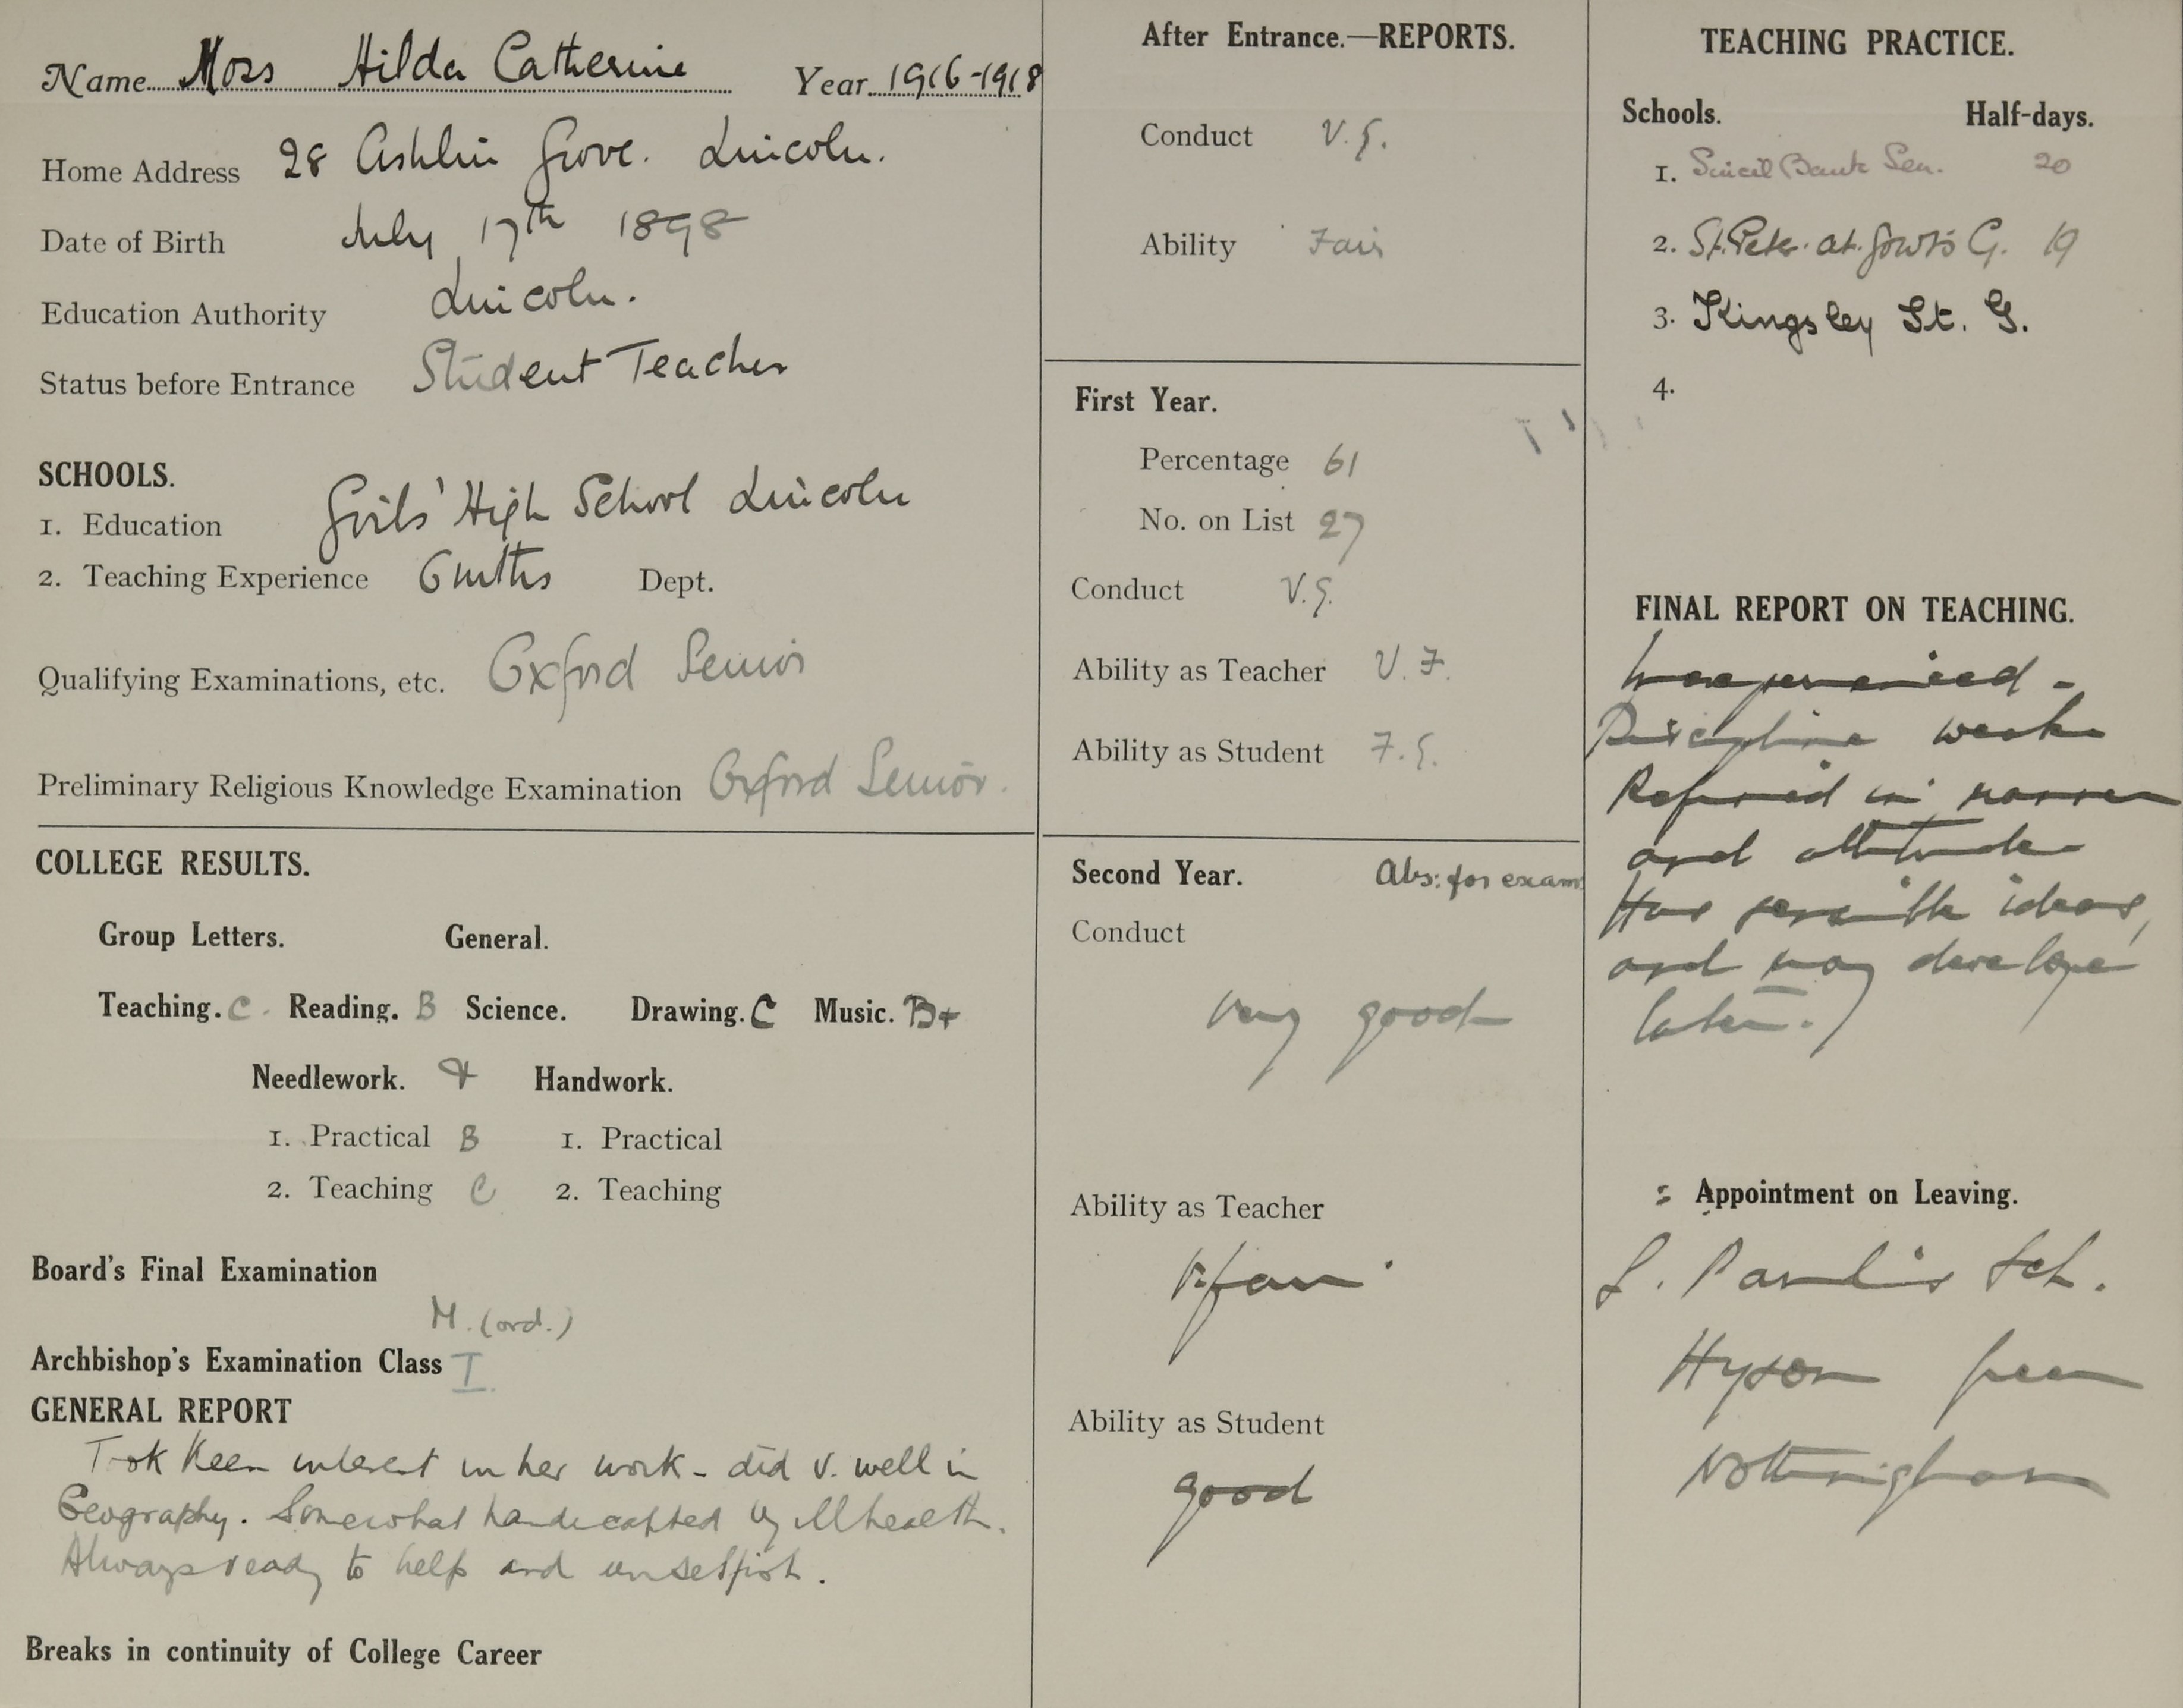 Name Moss Hilda Catherine Year 1916-1918
Home Address 28 Ashlin Grove. Lincoln.
Date of Birth July 17th 1898
Education Authority Lincoln.
Status before Entrance Student Teacher
SCHOOLS.
1. Education Girls' High School Lincoln
2. Teaching Experience 6 mths Dept.
Qualifying Examinations, etc. Oxford Senior
Preliminary Religious Knowledge Examination Oxford Senior.
COLLEGE RESULTS.
Group Letters. General.
Teaching. C. Reading. B Science. Drawing. C Music. B+
Needlework. Handwork.
1. Practical B 1. Practical
2. Teaching C 2. Teaching
Board's Final Examination
M. (ord.)
Archbishop's Examination Class I
GENERAL REPORT
Took keen interest in her work - did v. well in
Geography. Somewhat handicapped by ill health.
Always ready to help and unselfish.
Breaks in continuity of College Career
After Entrance.—REPORTS.
Conduct V.G.
Ability Fair
First Year.
Percentage 61
No. on List 27
Conduct V.G.
Ability as Teacher V.F.
Ability as Student F.G.
Second Year. Abs: for exam
Conduct
Very good
Ability as Teacher
V. fair
Ability as Student
good
TEACHING PRACTICE.
Schools. Half-days.
1. Sincil Bank Sen. 20
2. St. Peter at Gowts G. 19
3. Kingsley St. G.
4.
FINAL REPORT ON TEACHING.
Inexperienced -
Discipline weak
Refined in manner
and attitude
Has sensible ideas,
and may develope
later.
Appointment on Leaving.
S. Paul's Sch.
Hyson Green
Nottingham